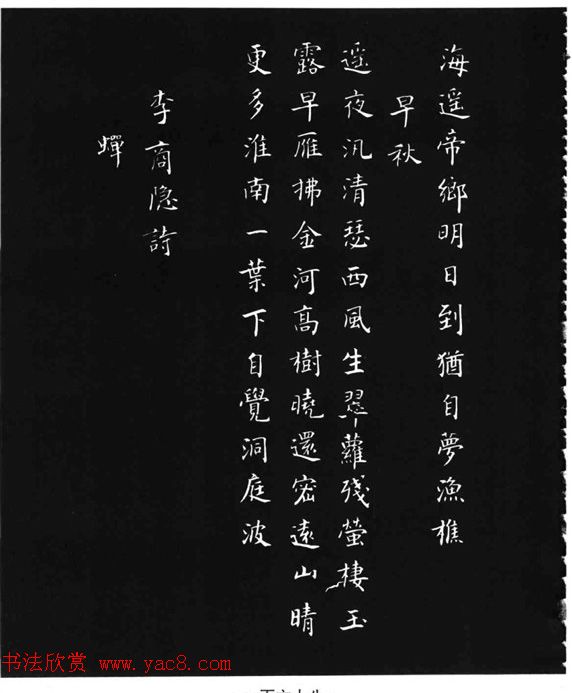 海遥帝鄉明日到猶自夢漁樵
早秋
遥夜汎清瑟西風生翠蘿殘螢棲玉
露早雁拂金河高樹曉還密遠山晴
更多淮南一葉下自覺洞庭波
李商隐詩
蟬
书法欣赏 www.yac8.com